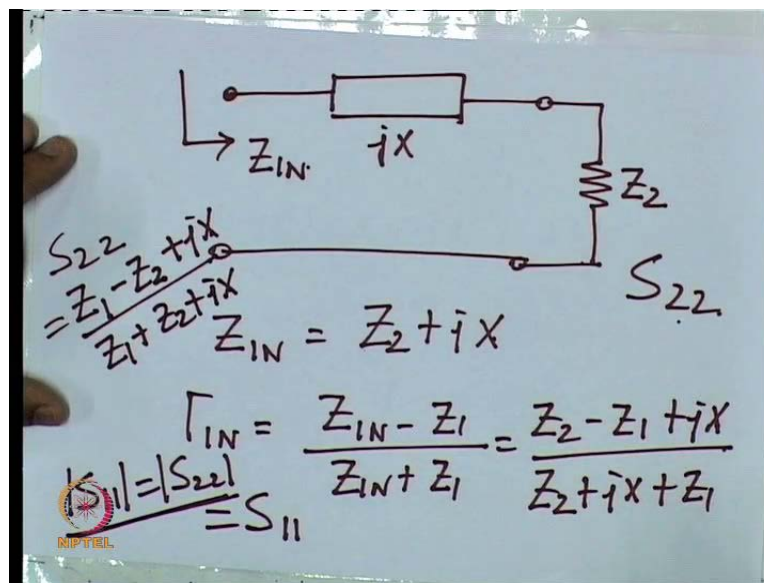 jX
Z_IN.
Z_2
S_22
S_22
= \frac{Z_1 - Z_2 + jX}{Z_1 + Z_2 + jX}
Z_IN = Z_2 + jX
Γ_IN = \frac{Z_IN - Z_1}{Z_IN + Z_1} = \frac{Z_2 - Z_1 + jX}{Z_2 + jX + Z_1}
|S_11| = |S_22|
= S_11
NPTEL